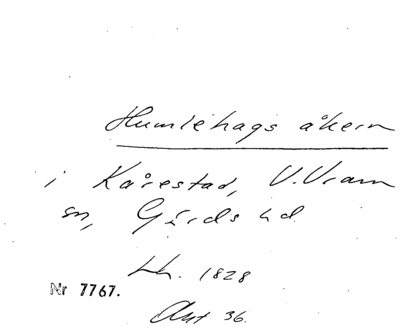 Humlehags åkern
i Kårestad, V. Vram
sn, Gärds hd
Lh. 1828
Nr 7767.
Akt 36.